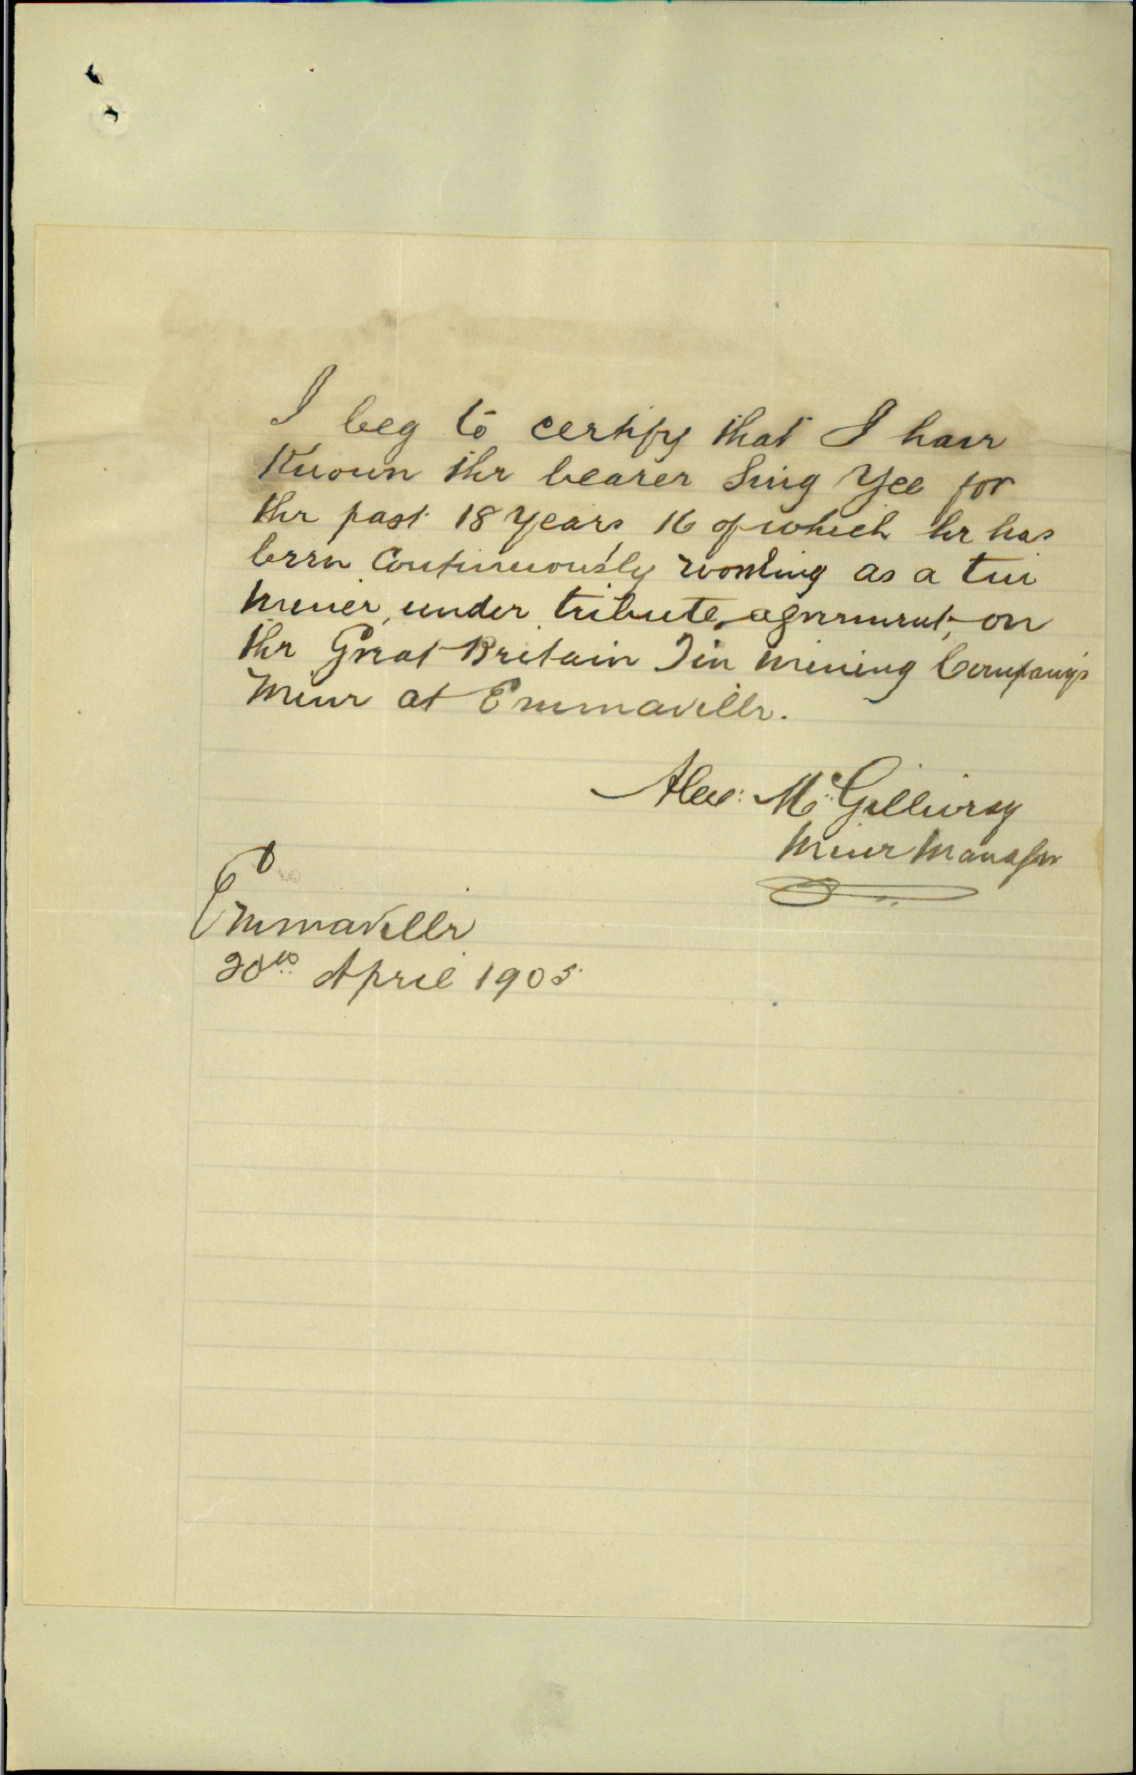 I beg to certify that I have
Known the bearer Sing Yee for
the past 18 years 16 of which he has
been continuously working as a tin
miner, under tribute agreement, on
the Great Britain Tin Mining Company's
Mine at Emmaville.
Alex: McGillivray
Mine Manager
Emmaville
20th April 1905